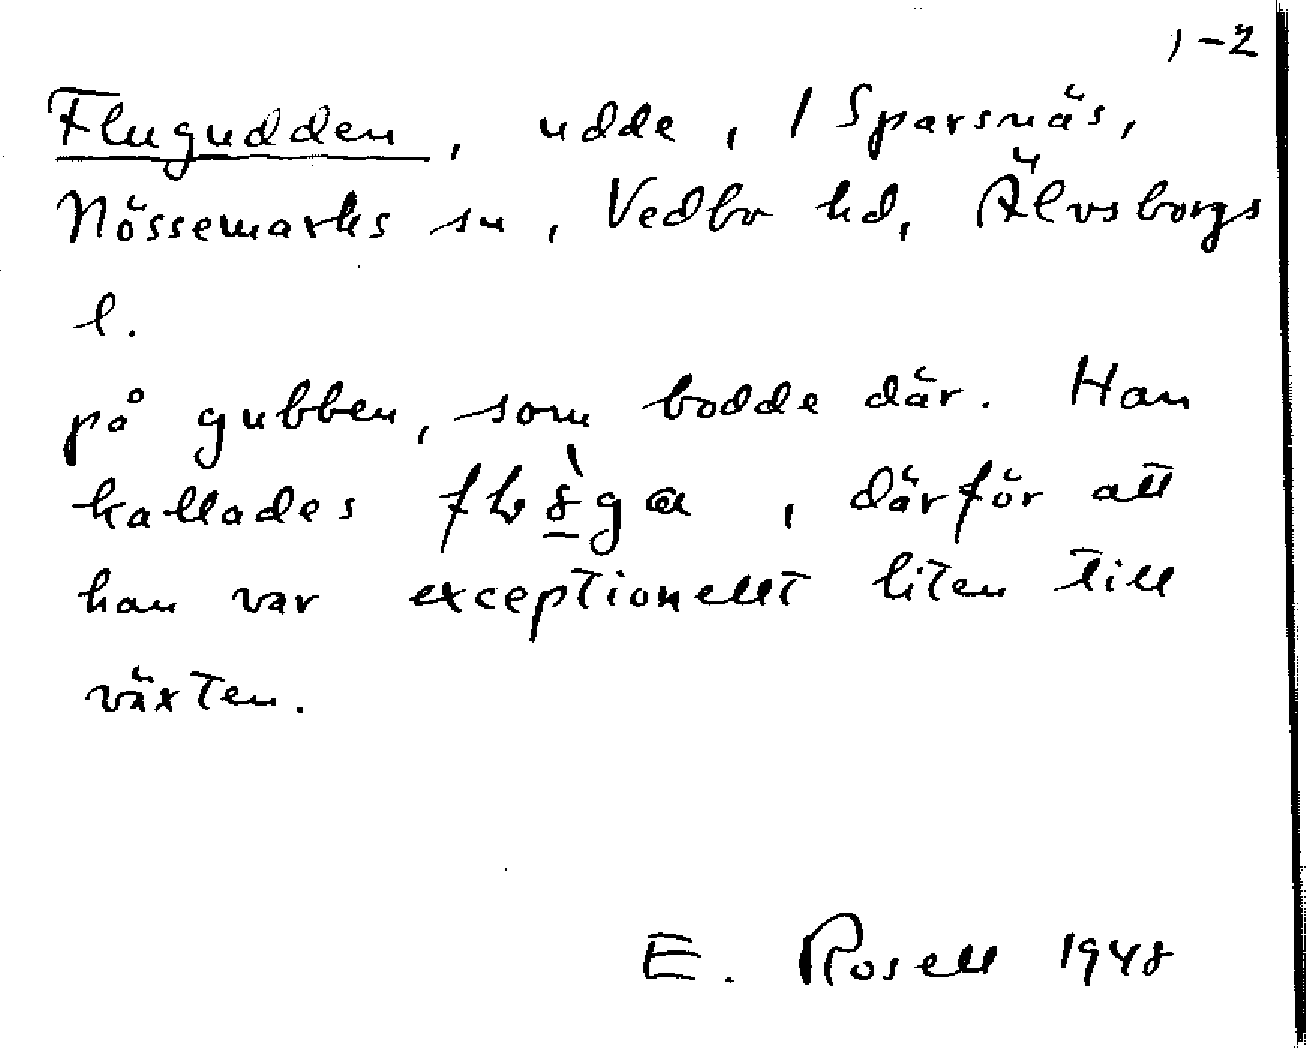 1-2
Flugudden, udde, 1 Sparsnäs,
Nössemarks sn, Vedbo hd, Älvsborgs
l.
på gubben, som bodde där. Han
kallades , därför att
han var exceptionellt liten till
växten.
E. Rosell 1948